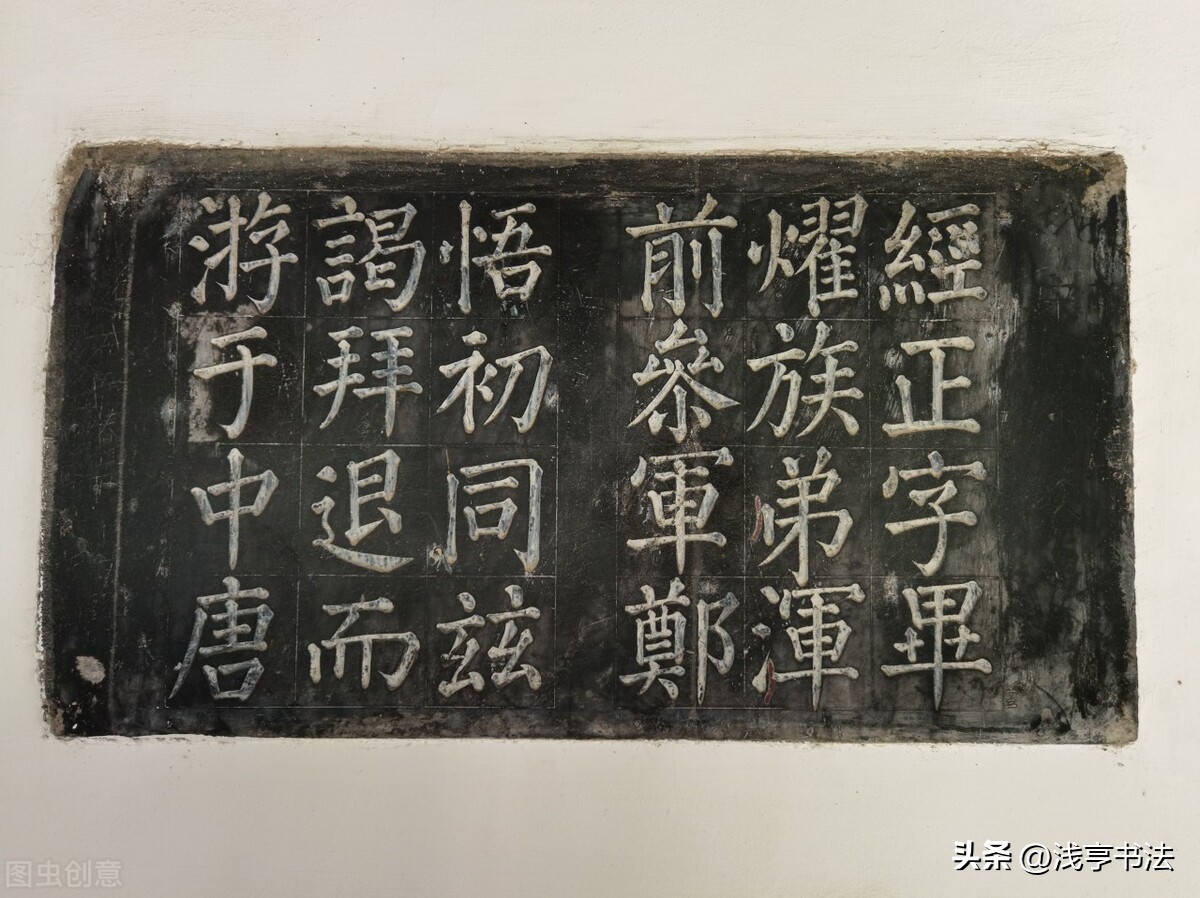 經正字畢
燿族弟渾
前叅軍鄭
悟初同茲
謁拜退而
游于中唐
头条 @浅亨书法
图虫创意